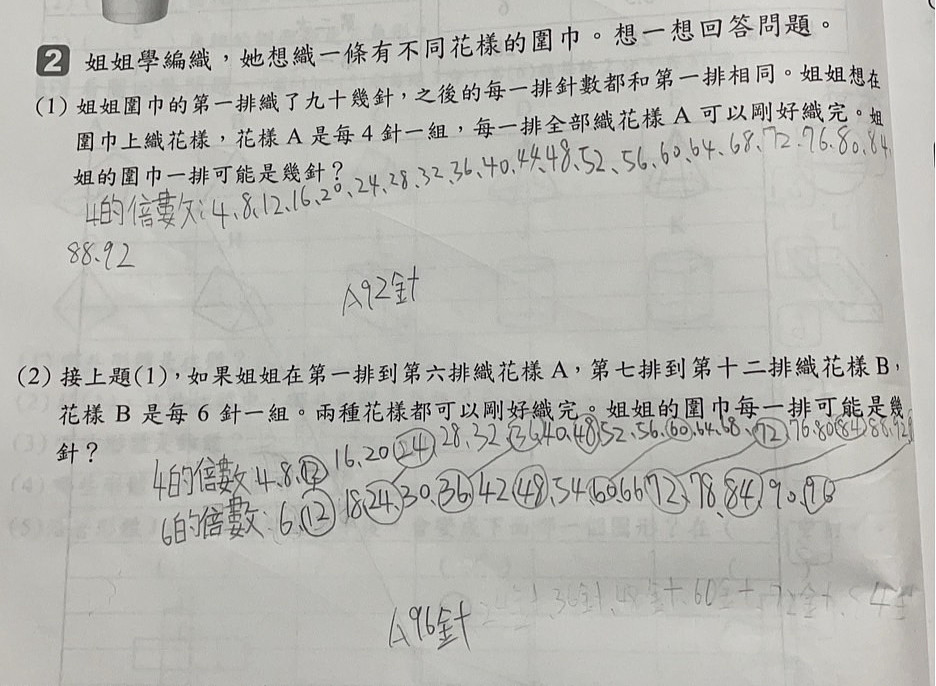 2 姐姐學編織，她想織一條有不同花樣的圍巾。想一想回答問題。
(1) 姐姐圍巾的第一排織了九十幾針，之後的每一排針數都和第一排相同。姐姐想在
圍巾上織花樣，花樣 A 是每 4 針一組，每一排全部織花樣 A 可以剛好織完。姐
姐的圍巾一排可能是幾針？
4的倍數：4、8、12、16、20、24、28、32、36、40、44、48、52、56、60、64、68、72、76、80、84、
88、92
A92針
(2) 接上題(1)，如果姐姐在第一排到第六排織花樣 A，第七排到第十二排織花樣 B，
花樣 B 是每 6 針一組。兩種花樣都可以剛好織完。姐姐的圍巾每一排可能是幾
針？
4的倍數：4、8、12、16、20、24、28、32、36、40、48、52、56、60、64、68、72、76、80、84、88、92
6的倍數：6、12、18、24、30、36、42、48、54、60、66、72、78、84、90、96
36針、48針、60針、72針
A96針